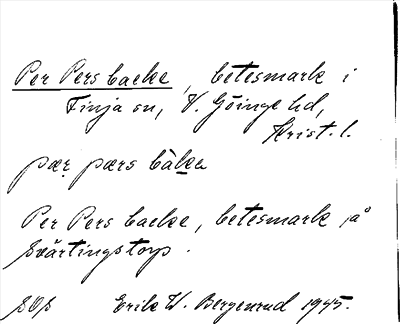 Per Pers backe, betesmark i
Finja sn, V. Göinge hd,
Krist. l.
pær pærs bàka
Per Pers backe, betesmark på
Svärtingstorp.
SOS Erik W. Bergenrud 1945.